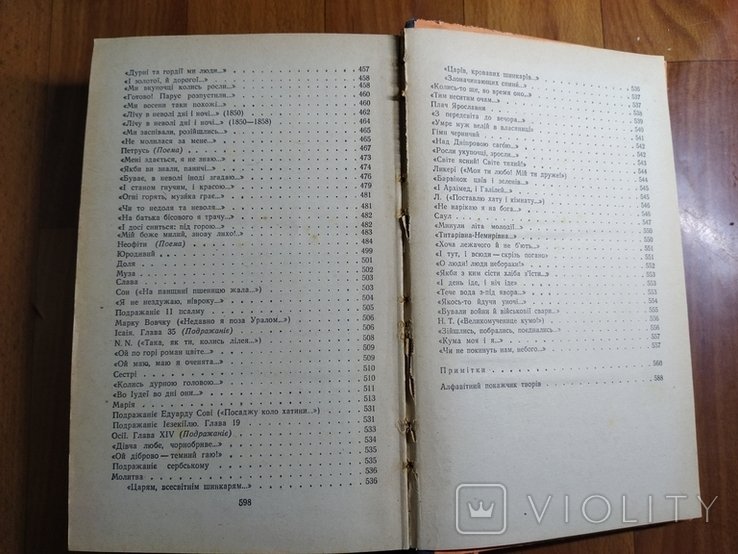 «Дурні та гордії ми люди...» 457
«І золотої, й дорогої...» 458
«Ми вкупочці колись росли...» 458
«Готово! Парус розпустили...» 460
«Ми восени таки похожі...» 460
«Лічу в неволі дні і ночі...» (1850) 462
«Лічу в неволі дні і ночі...» (1850—1858) 464
«Ми заспівали, розійшлись...»
«Не молилася за мене...»
Петрусь (Поема) 467
«Мені здається, я не знаю...» 473
«Якби ви знали, паничі... 474
«Буває, в неволі іноді згадаю...» 476
«І станом гнучим, і красою...» 479
«Огні горять, музика грає...»
«Чи то недоля та неволя...» 481
«На батька бісового я трачу...» 482
«І досі сниться: під горою...» 482
«Мій боже милий, знову лихо!..» 483
Неофіти (Поема) 484
Юродивий 499
Доля 502
Муза
Слава 503
Сон («На панщині пшеницю жала...»)
«Я не нездужаю, нівроку...» 505
Подражаніє 11 псалму
Марку Вовчку («Недавно я поза Уралом...»)
Ісаія. Глава 35 (Подражаніє)
N. N. («Така, як ти, колись лілея...») 508
«Ой по горі роман цвіте...» 509
«Ой маю, маю я оченята...» 509
Сестрі 510
«Колись дурною головою...» 510
«Во Іудеї во дні они...» 511
Марія 513
Подражаніє Едуарду Сові («Посаджу коло хатини...») 531
Подражаніє Ієзекіїлю. Глава 19 531
Осії. Глава XIV (Подражаніє) 533
«Дівча любе, чорнобриве...» 534
«Ой діброво — темний гаю!» 535
Подражаніє сербському 535
Молитва
«Царям, всесвітнім шинкарям...» 536
598
«Царів, кровавих шинкарів...»
«Злоначинающих спини...» 536
«Колись-то ще, во время оно...» 537
«Тим неситим очам...» 537
Плач Ярославни 538
«З передсвіта до вечора...» 539
«Умре муж велій в власяниці»
Гімн черничий
«Над Дніпровою сагою...» 542
«Росли укупочці, зросли...» 542
«Світе ясний! Світе тихий!»
Ликері («Моя ти любо! Мій ти друже!»)
«Барвінок цвів і зеленів...» 544
«І Архімед, і Галілей» 545
Л. («Поставлю хату і кімнату...») 545
«Не нарікаю я на бога...»
Саул 546
«Минули літа молодії...»
«Титарівна-Немирівна...»
«Хоча лежачого й не б'ють...» 550
«І тут, і всюди — скрізь погано» 551
«О люди! люди небораки!» 552
«Якби з ким сісти хліба з'їсти...»
«І день іде, і ніч іде» 553
«Тече вода з-під явора...» 553
«Якось-то йдучи уночі...» 554
«Бували войни й військовії свари...»
Н. Т. («Великомученице кумо!»)
«Зійшлись, побрались, поєднались...»
«Кума моя і я...» 557
«Чи не покинуть нам, небого...» 557
Примітки 560
Алфавітний покажчик творів 588
VIOLITY